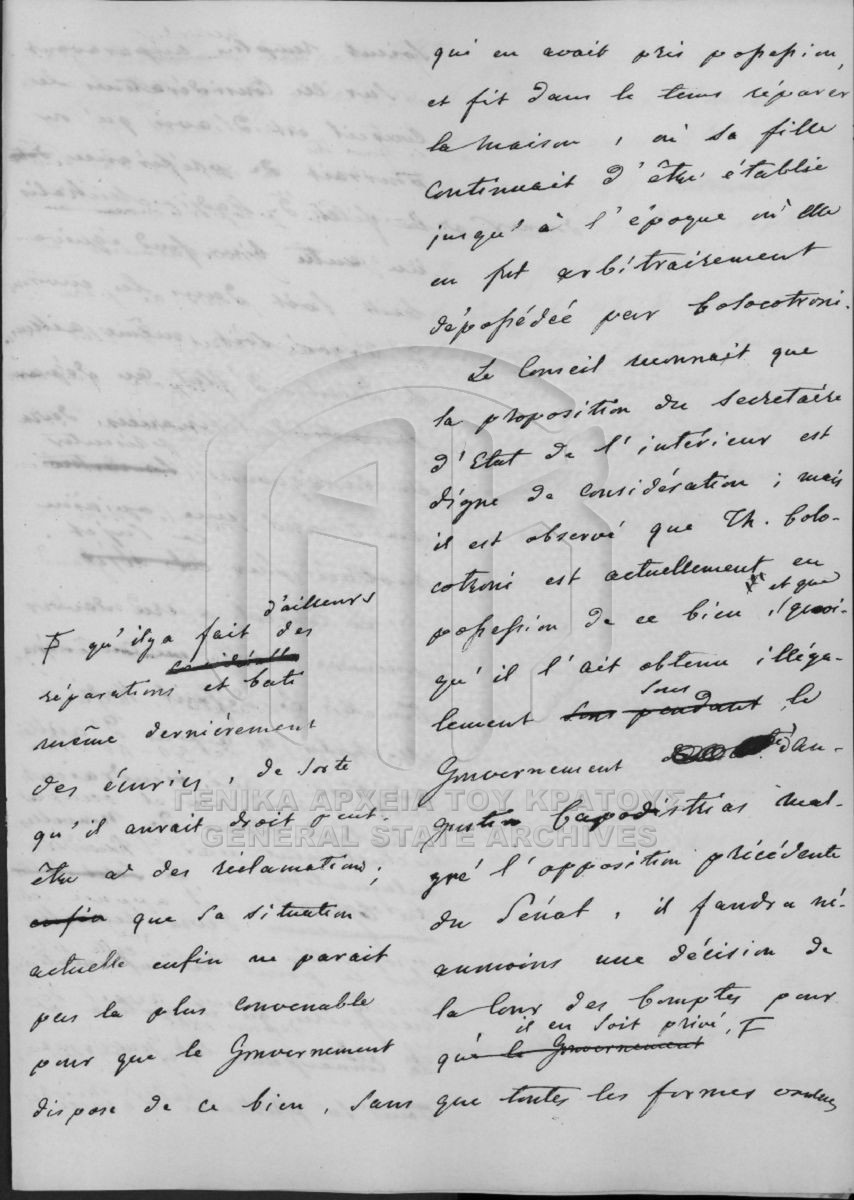 qui en avait pris possession,
et fit dans le tems réparer
la maison, où sa fille
continuait d'être établie
jusqu'à l'époque où elle
en fut arbitrairement
dépossédéé par Colocotroni.
Le Conseil reconnait que
la proposition du Secretaire
d'Etat de l'intérieur est
digne de considération ; mais
il est observé que Th. Colo-
cotroni est actuellement en
possession de ce bien, et que quoi-
qu'il l'ait obtenu illéga-
lement sous pendant sous le
Gouvernement d'Au-
gustin Capodistrias mal-
gré l'opposition précédente
du Sénat, il faudra né-
anmoins une décision de
la Cour des Comptes pour
qu'il en soit privé, F
que le Gouvernement
que toutes les formes
F qu'il y a fait d'ailleurs des
réparations et bati
même dernièrement
des écuries, de sorte
qu'il aurait droit peut-
être à des réclamations;
enfin que sa situation
actuelle enfin ne parait
pas la plus convenable
pour que le Gouvernement
dispose de ce bien, sans
ΓΕΝΙΚΑ ΑΡΧΕΙΑ ΤΟΥ ΚΡΑΤΟΥΣ
GENERAL STATE ARCHIVES